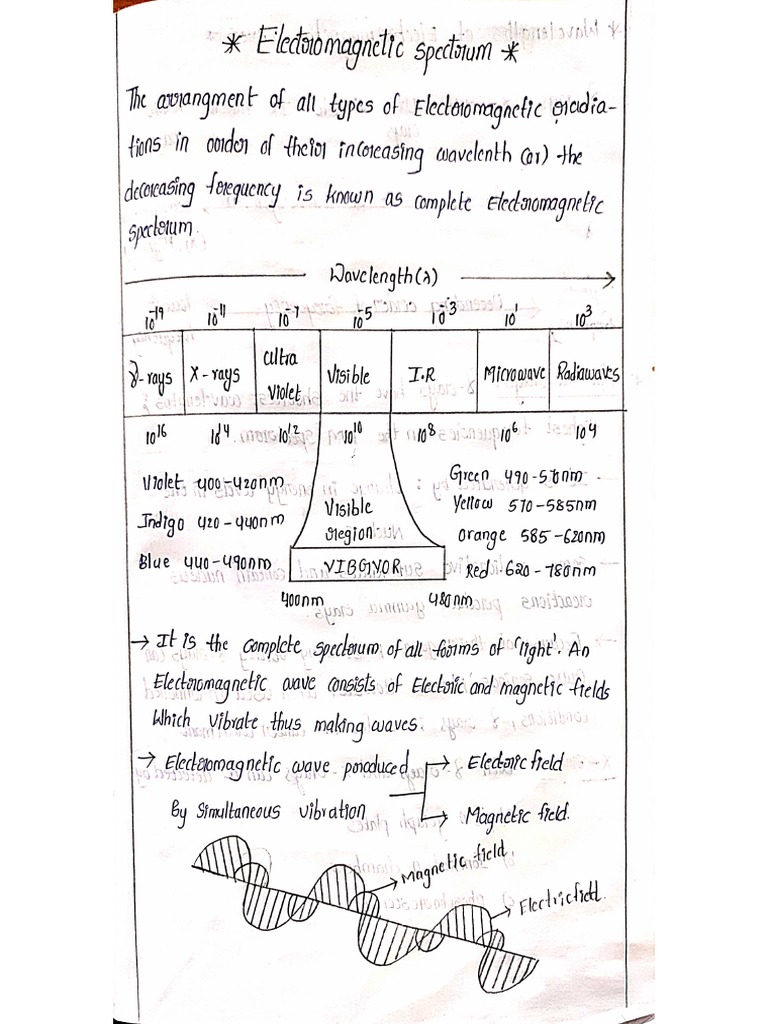 * Electromagnetic spectrum *
The arrangment of all types of Electromagnetic radia-
tions in order of their increasing wavelenth (or) the
decreasing frequency is known as complete Electromagnetic
spectrum.
Wavelength (λ)
10⁻¹⁹ 10⁻¹¹ 10⁻⁷ 10⁻⁵ 10⁻³ 10¹ 10³
γ-rays X-rays Ultra Violet Visible I.R Microwave Radiawaves
10¹⁶ 10¹⁴ 10¹² 10¹⁰ 10⁸ 10⁶ 10⁴
Violet 400-420nm
Indigo 420-440nm
Blue 440-490nm
Visible
region
VIBGYOR
400nm 480nm
Green 490-570nm
Yellow 570-585nm
Orange 585-620nm
Red 620-780nm
→ It is the complete spectrum of all forms of 'light'. An
Electromagnetic wave consists of Electric and magnetic fields
Which vibrate thus making waves.
→ Electromagnetic wave produced → Electric field
By simultaneous vibration → Magnetic field.
Magnetic field
Electric field.